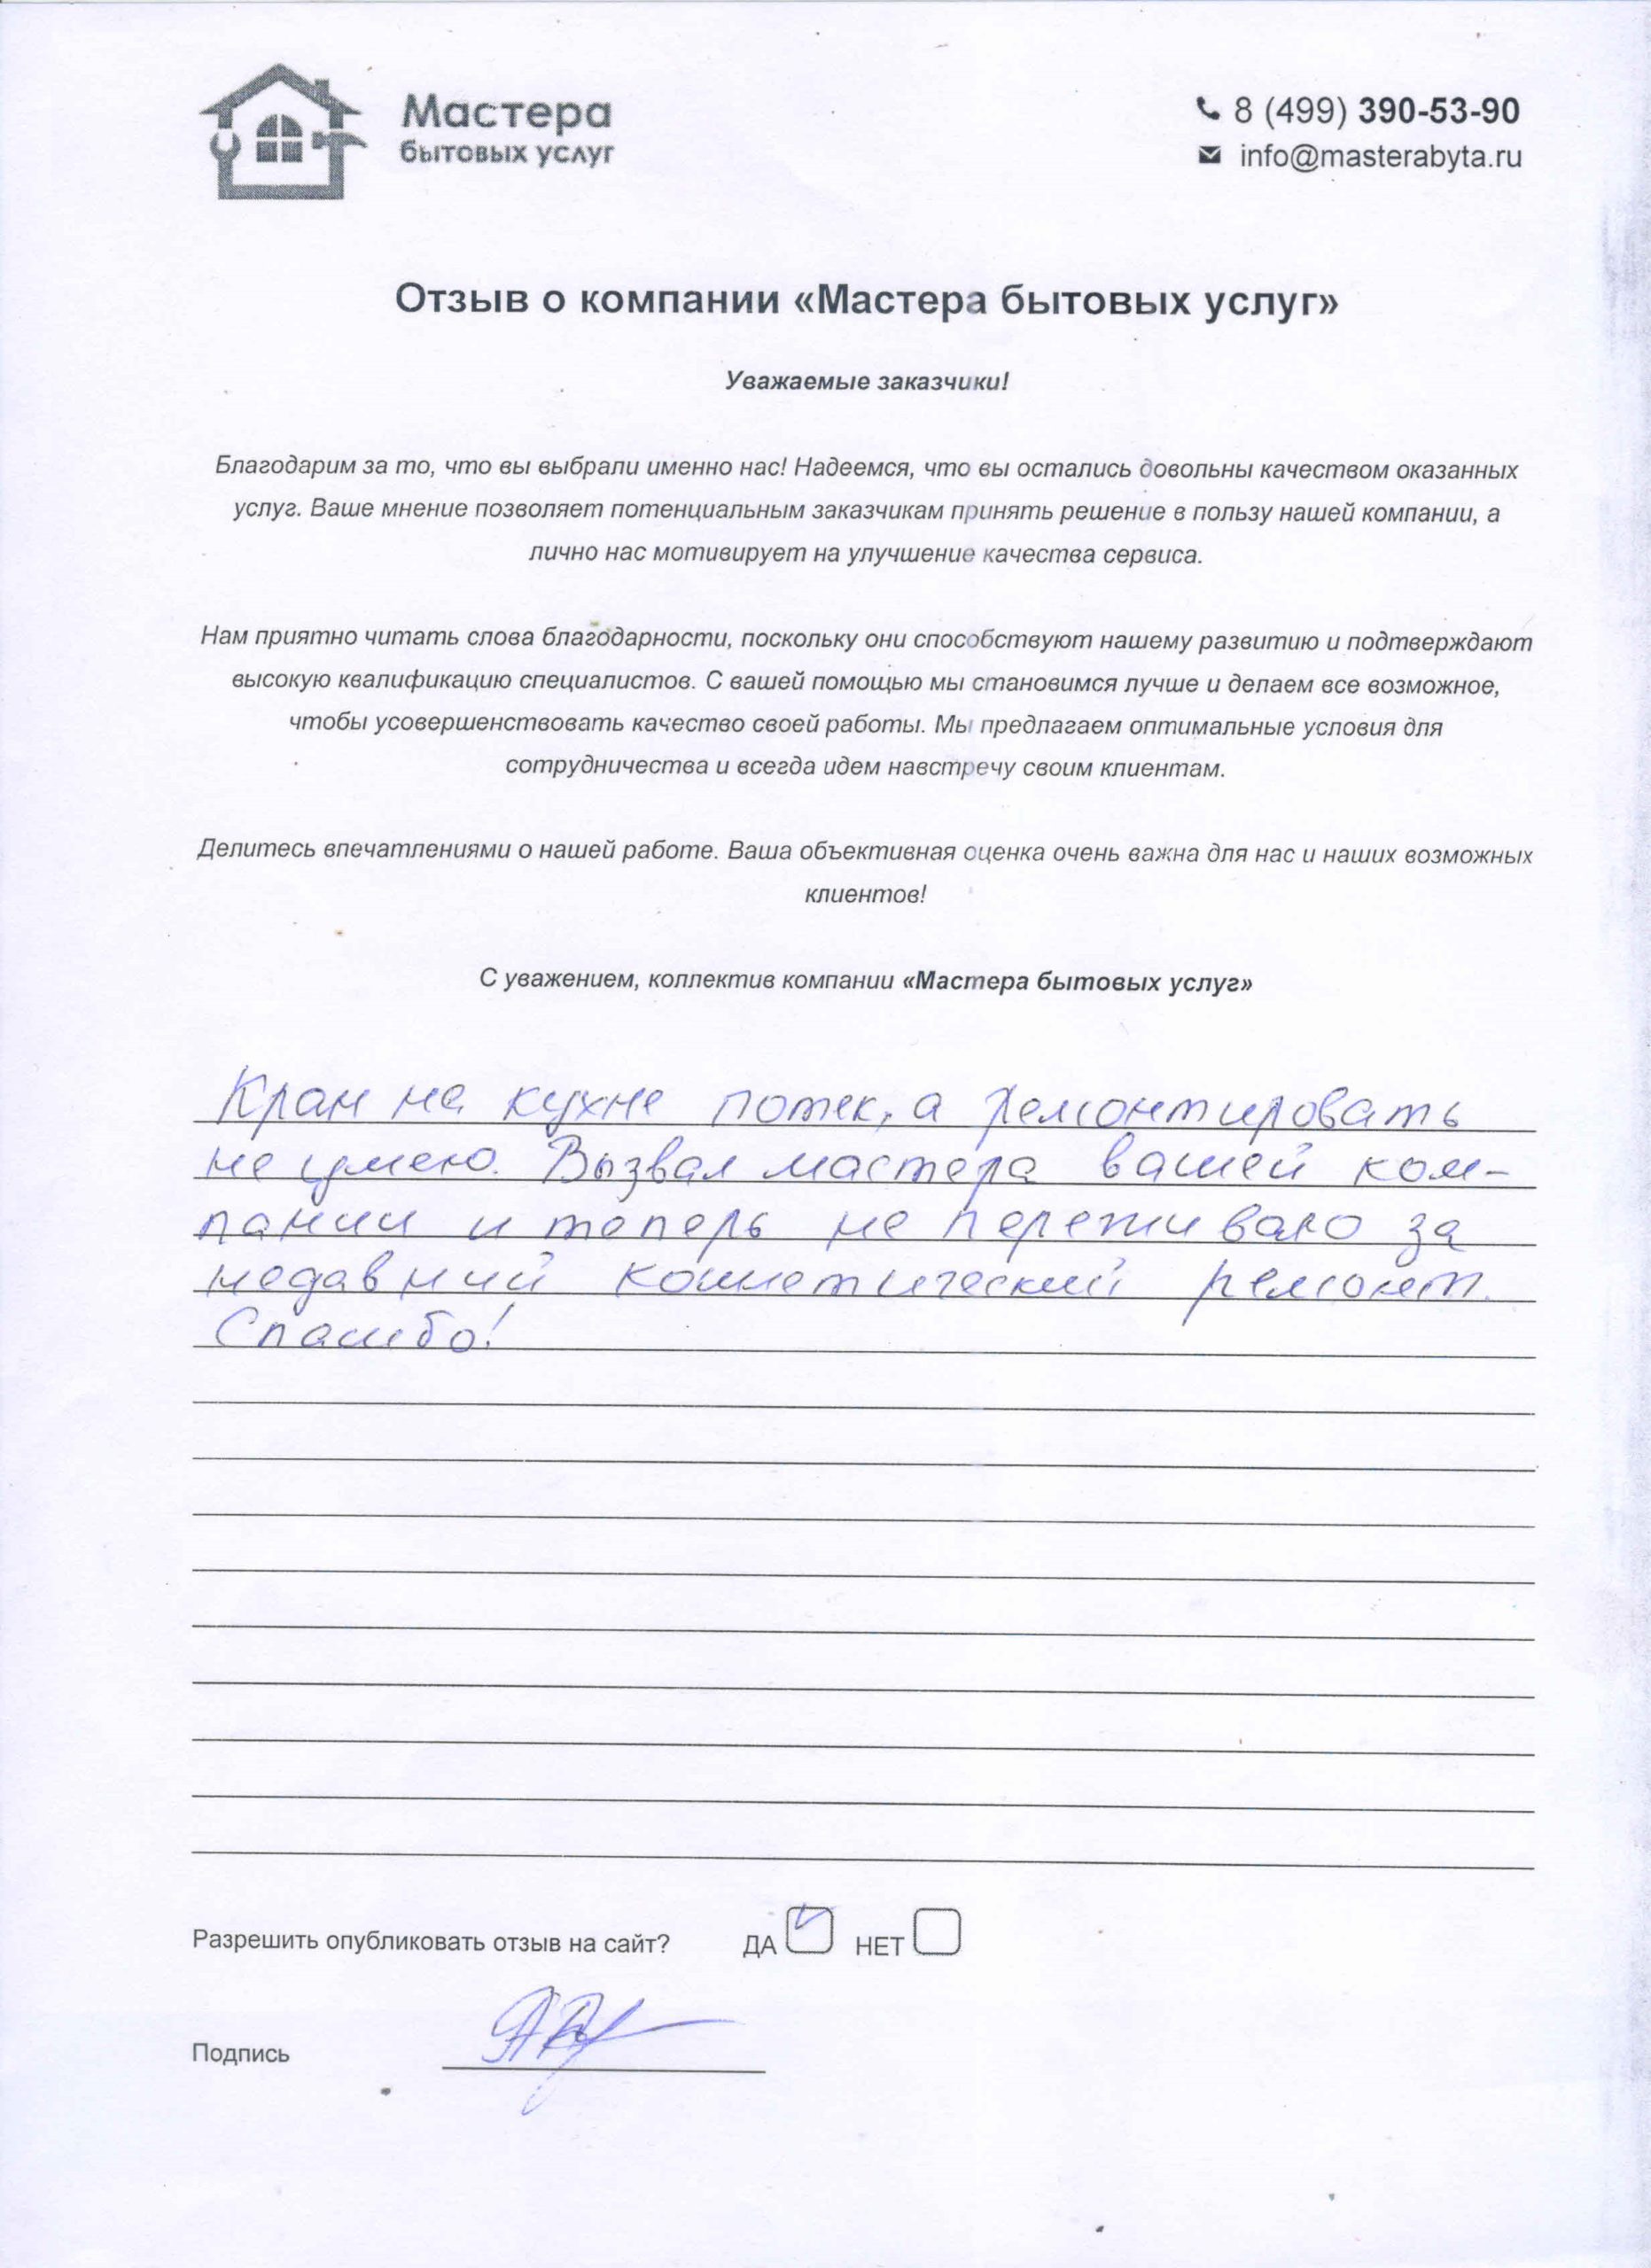 Мастера
бытовых услуг
8 (499) 390-53-90
info@masterabyta.ru
Отзыв о компании «Мастера бытовых услуг»
Уважаемые заказчики!
Благодарим за то, что вы выбрали именно нас! Надеемся, что вы остались довольны качеством оказанных
услуг. Ваше мнение позволяет потенциальным заказчикам принять решение в пользу нашей компании, а
лично нас мотивирует на улучшение качества сервиса.
Нам приятно читать слова благодарности, поскольку они способствуют нашему развитию и подтверждают
высокую квалификацию специалистов. С вашей помощью мы становимся лучше и делаем все возможное,
чтобы усовершенствовать качество своей работы. Мы предлагаем оптимальные условия для
сотрудничества и всегда идем навстречу своим клиентам.
Делитесь впечатлениями о нашей работе. Ваша объективная оценка очень важна для нас и наших возможных
клиентов!
С уважением, коллектив компании «Мастера бытовых услуг»
Кран на кухне потек, а ремонтировать
не умею. Вызвал мастера вашей ком-
пании и теперь не переживаю за
недавний косметический ремонт.
Спасибо!
Разрешить опубликовать отзыв на сайт? ДА НЕТ
Подпись